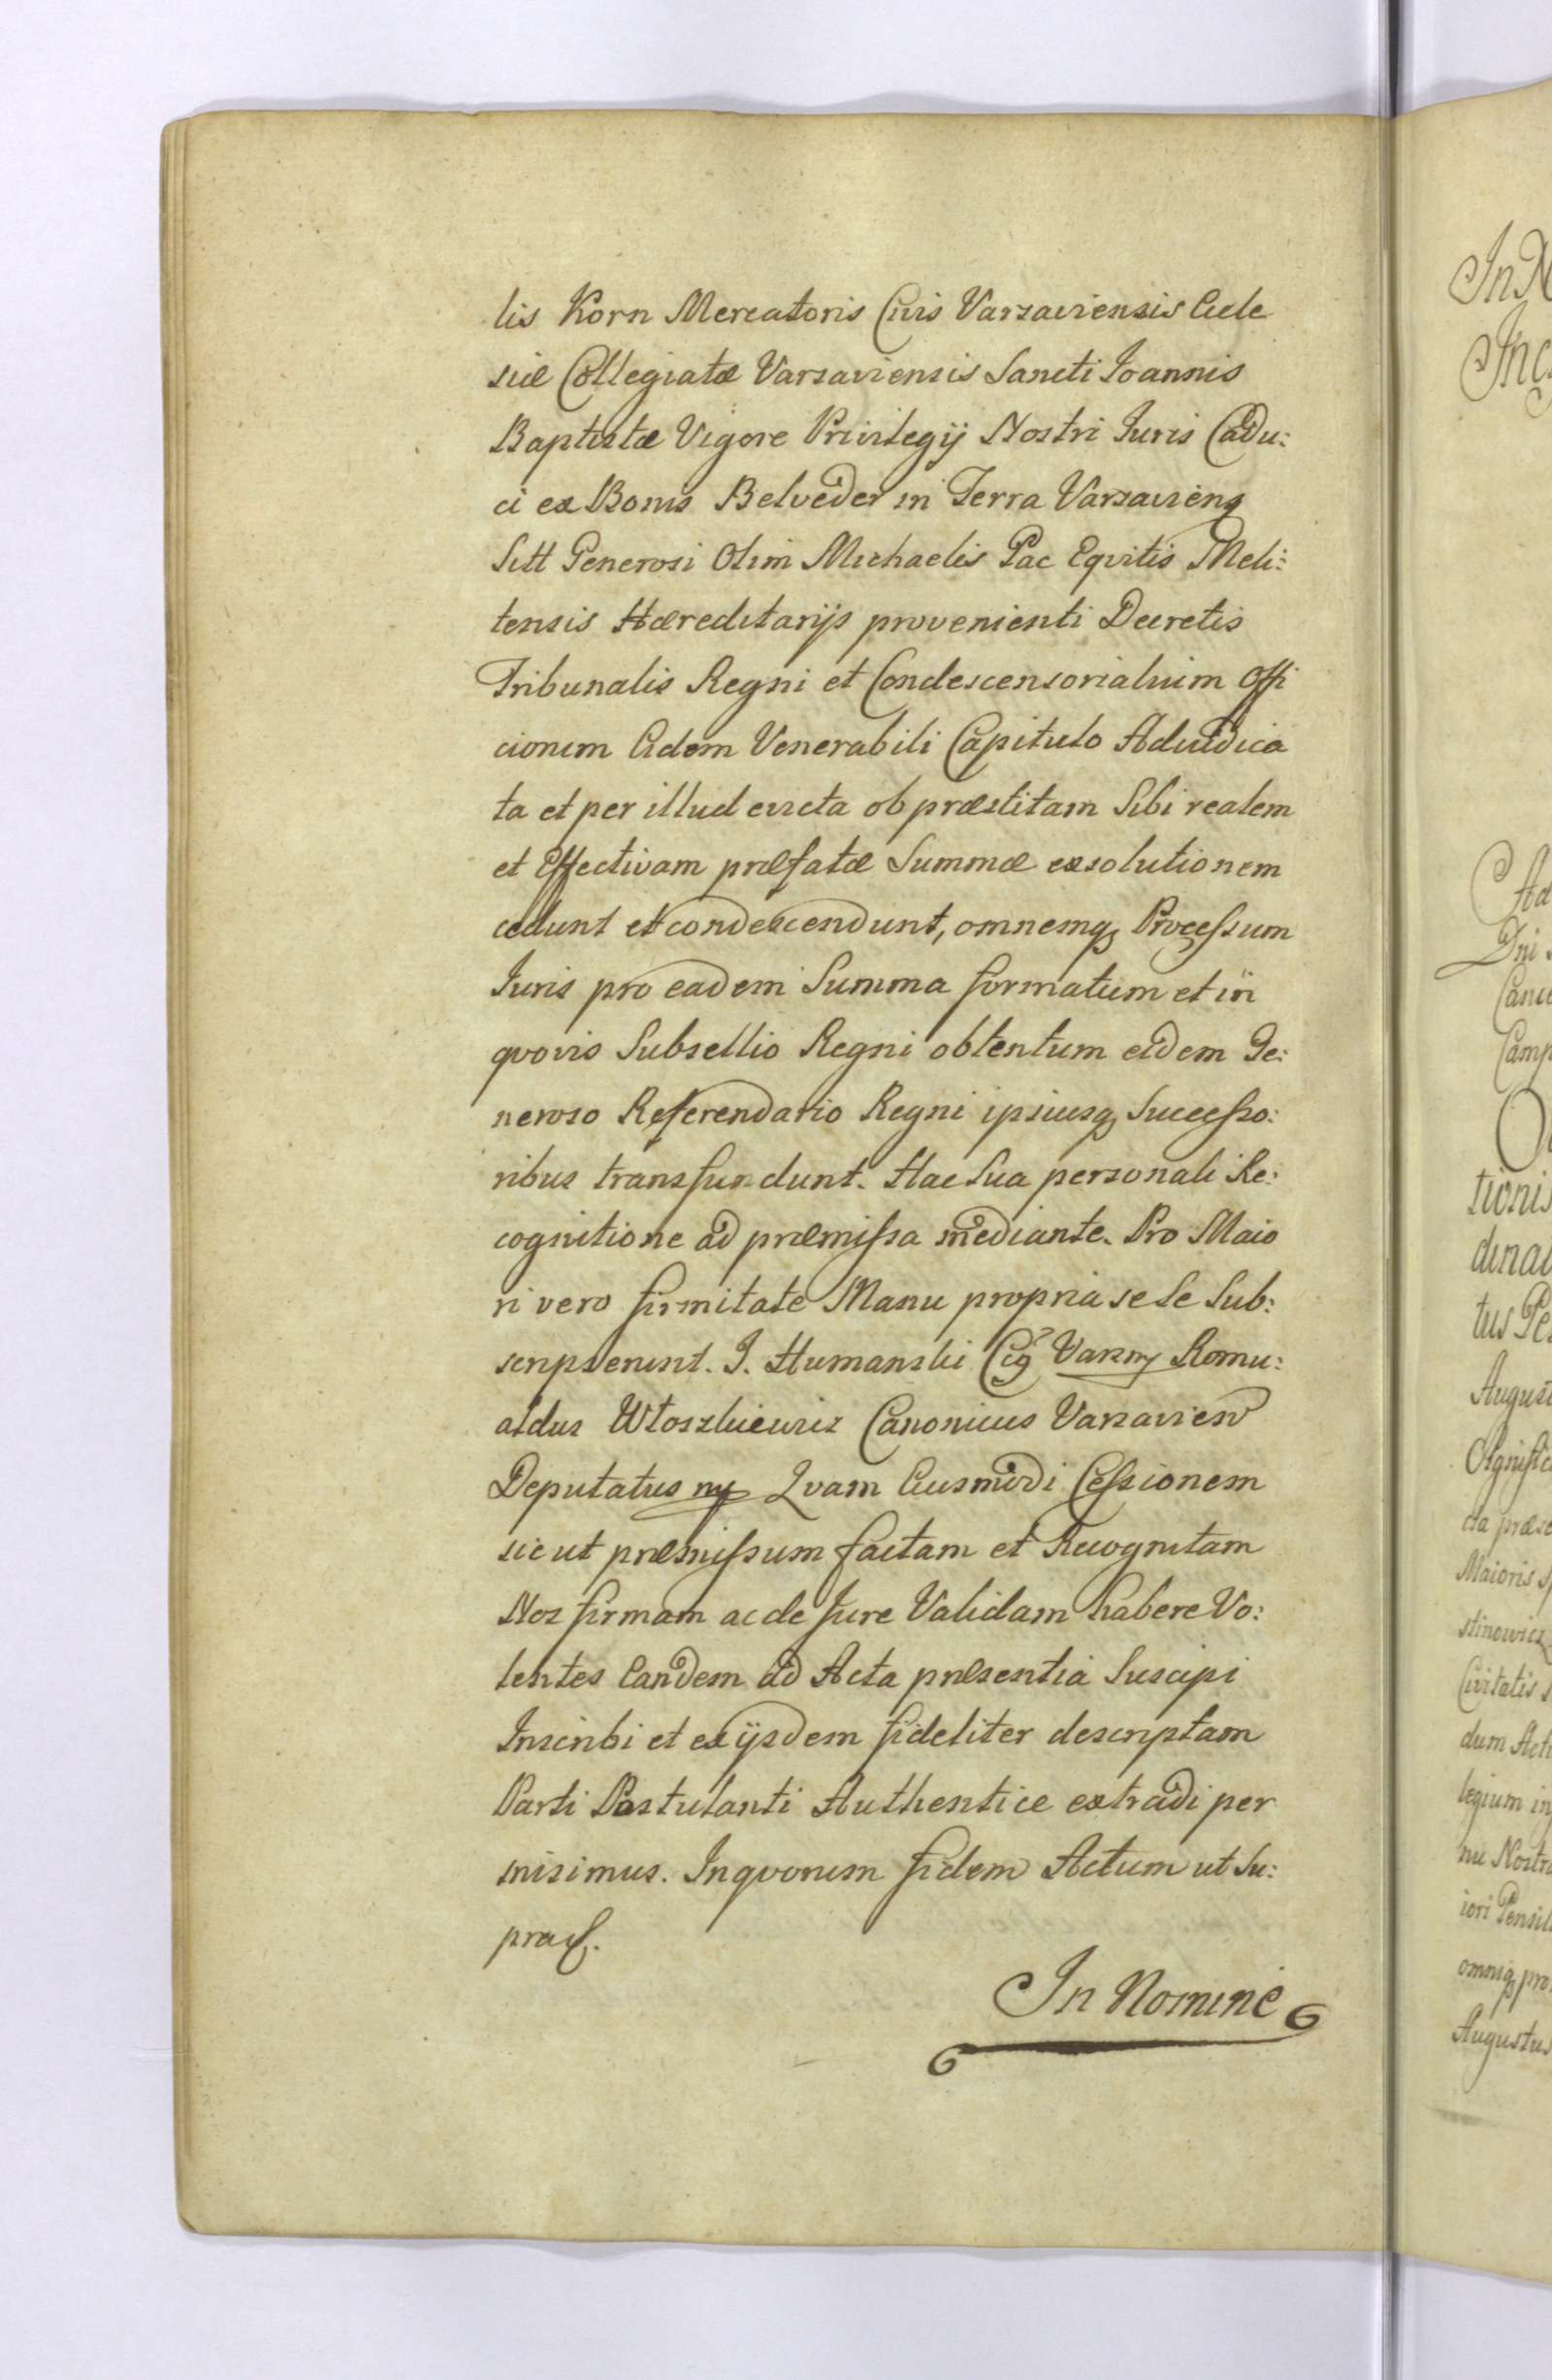 lis Korn Mercatoris Civis Varsaviensis Eccle
siæ Collegiatæ Varsaviensis Sancti Ioannis
Baptistæ Vigore Privilegij Nostri Iuris Cadu:
ci ex Bonis Belveder in Terra Varsaviens
Sitt Generosi Olim Michaelis Pac Eqvitis Meli:
tensis Hæreditarijs provenienti Decretis
Tribunalis Regni et Condescensorialium Offi
ciorum Eidem Venerabili Capitulo Adiudica
ta et per illud evicta ob præstitam Sibi realem
et Effectivam præfatæ Summæ exsolutionem
cedunt et condescendunt, omnemq Processum
Iuris pro eadem Summa formatum et in
qvovis Subsellio Regni obtentum eidem Ge:
neroso Referendario Regni ipsiusq Successo:
ribus transfundunt. Hac Sua personali Re:
cognitione ad præmissa mediante. Pro Maio
ri vero firmitate Manu propria sese Sub:
scripserunt. J. Humanski Varmp Romu:
aldus Włoszkiewicz Canonicus Varsavien
Deputatus mp Qvam Eiusmodi Cessionem
sicut præmissum factam et Recognitam
Nos firmam ac de Jure Validam habere Vo:
lentes Eandem ad Acta præsentia Suscipi
Inscribi et ex ijsdem fideliter descriptam
Parti Postulanti Authentice extradi per
misimus. In qvorum fidem Actum ut Su:
pra.
In Nomine
In N
Ad
Dni
tionis
dinal
Maioris
stinowicz
Civitatis
dum Act
legium in
nu Nostra
iori Pensil
omniq pro
Augustus